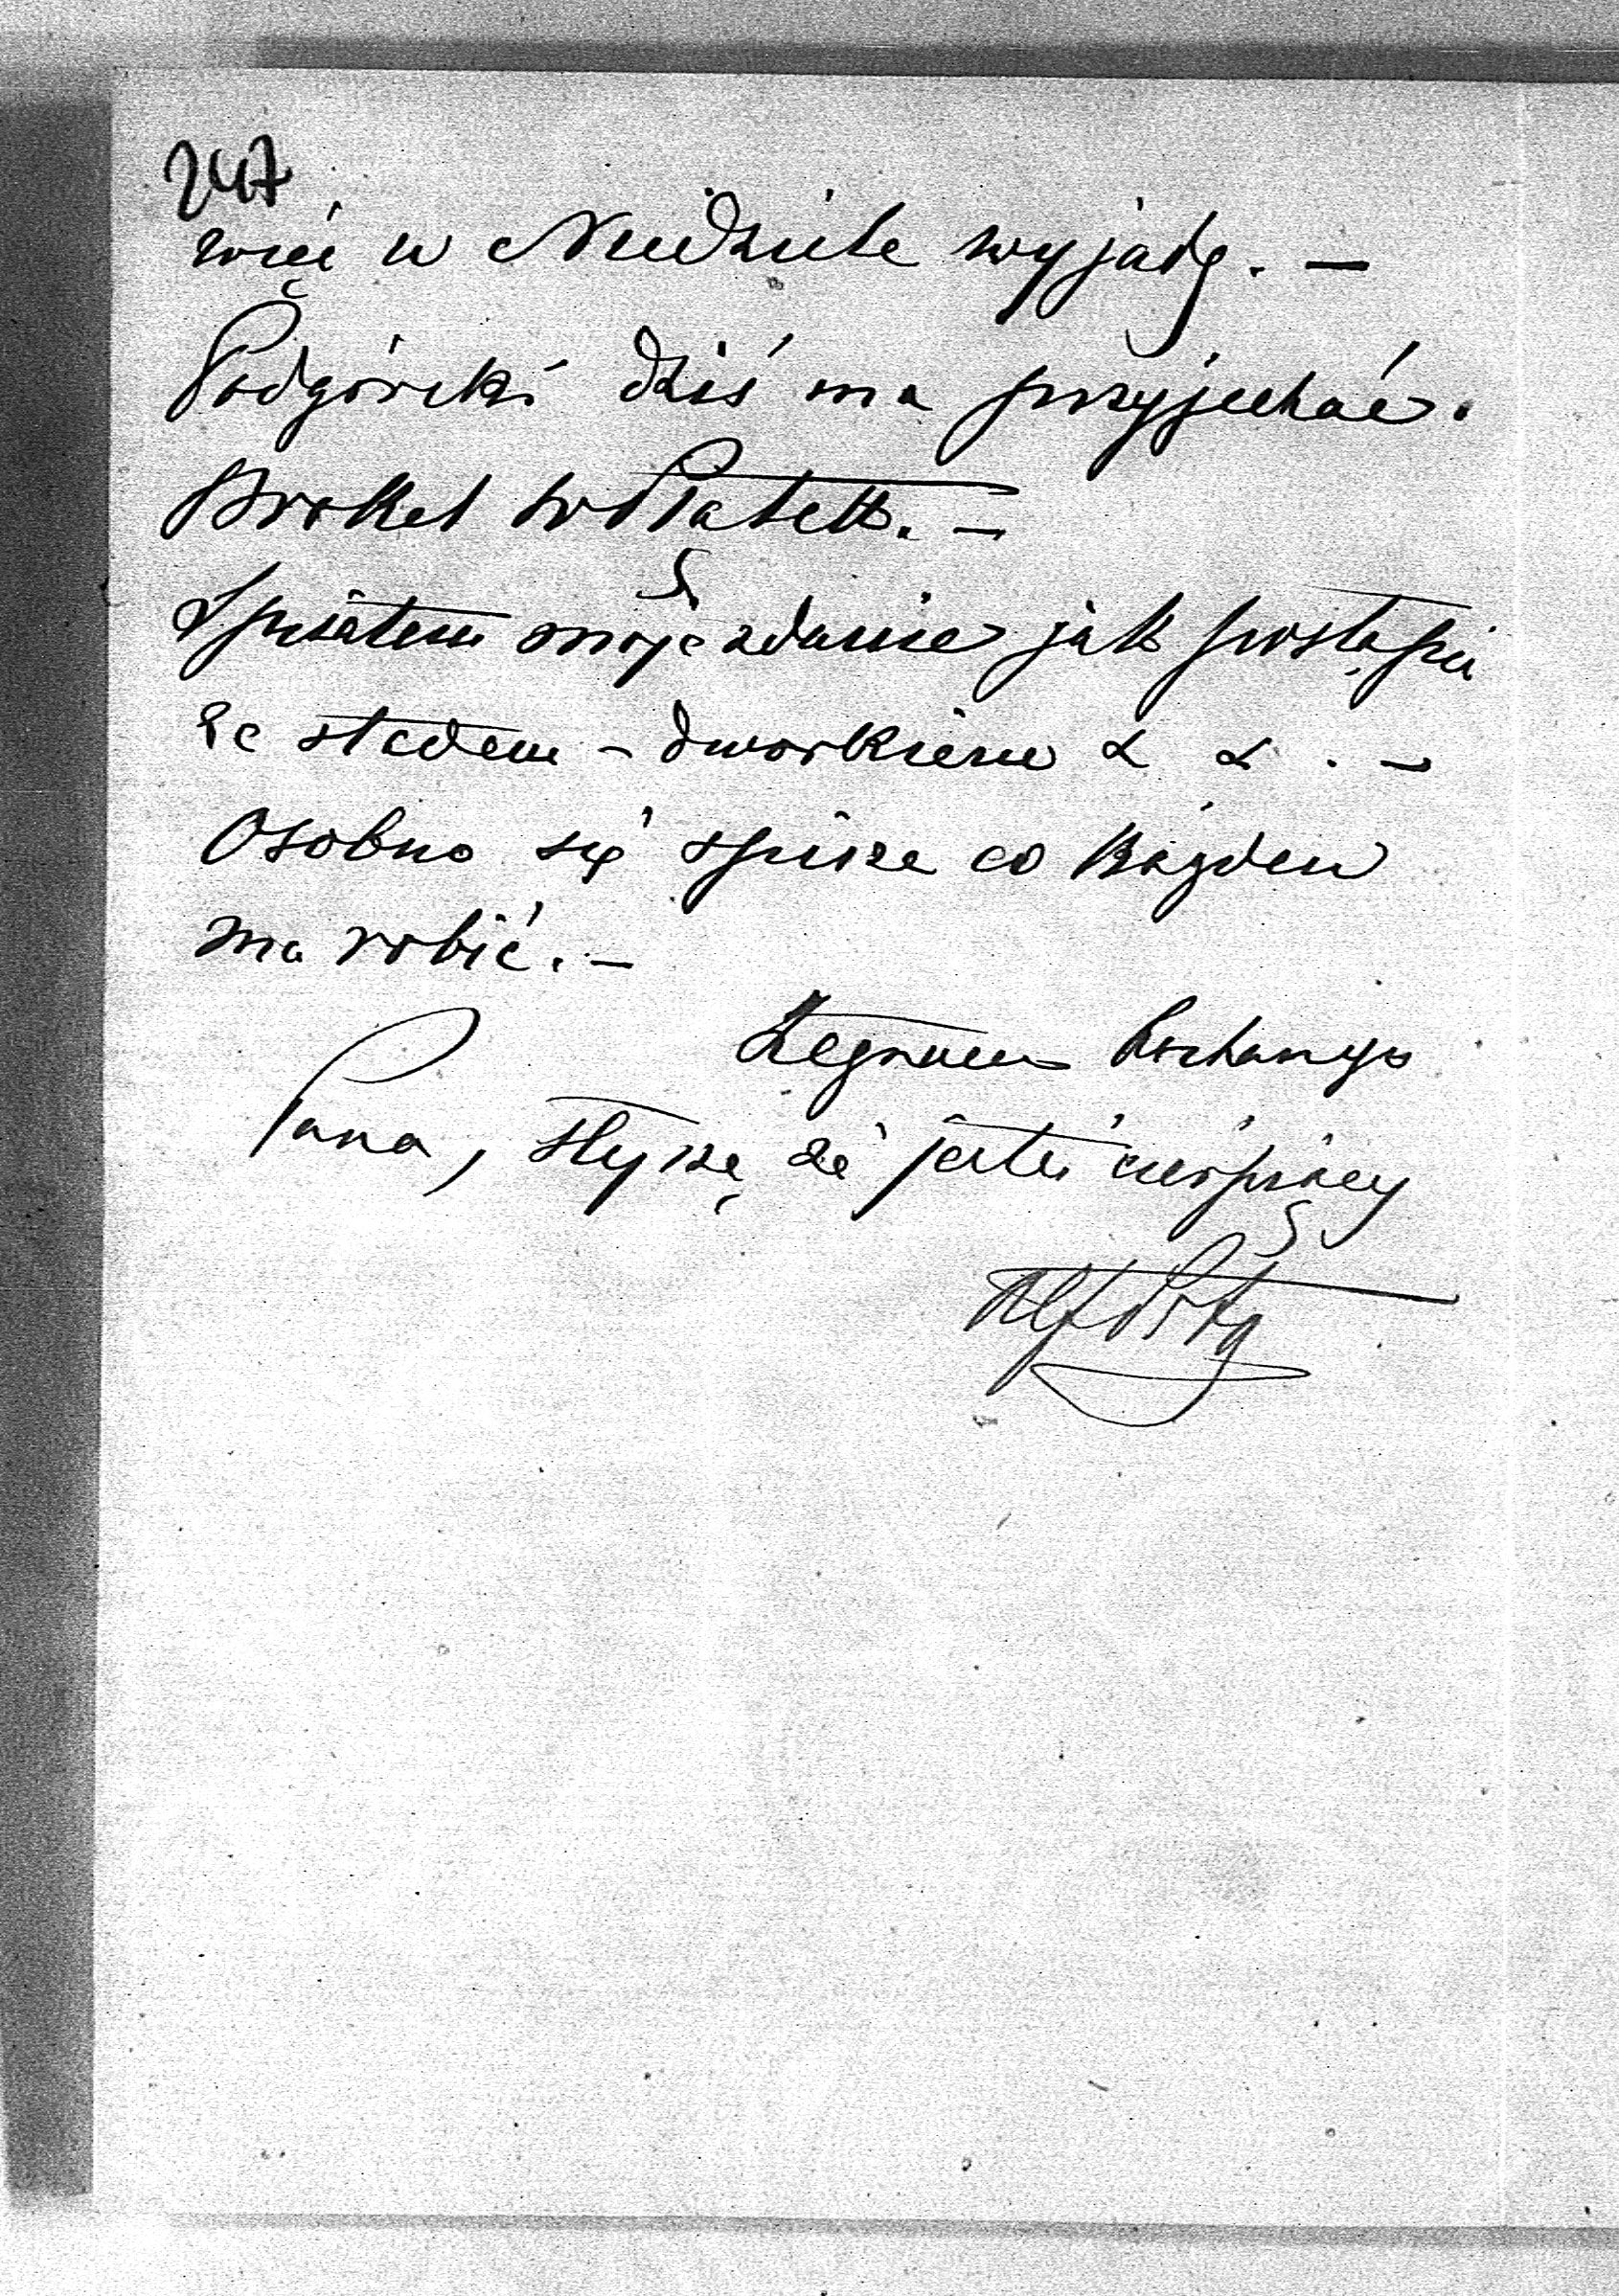 247
więc w Niedziele wyjadę. —
Podgórski dziś ma przyjechać.
Brokel —
Spisałem moje zdanie jak postąpić
ze stadem – dworkiem & & . —
Osobno się spisze co Bagden
ma robić. —
Żegnam kochanego
Pana, słyszę że jesteś cierpiący